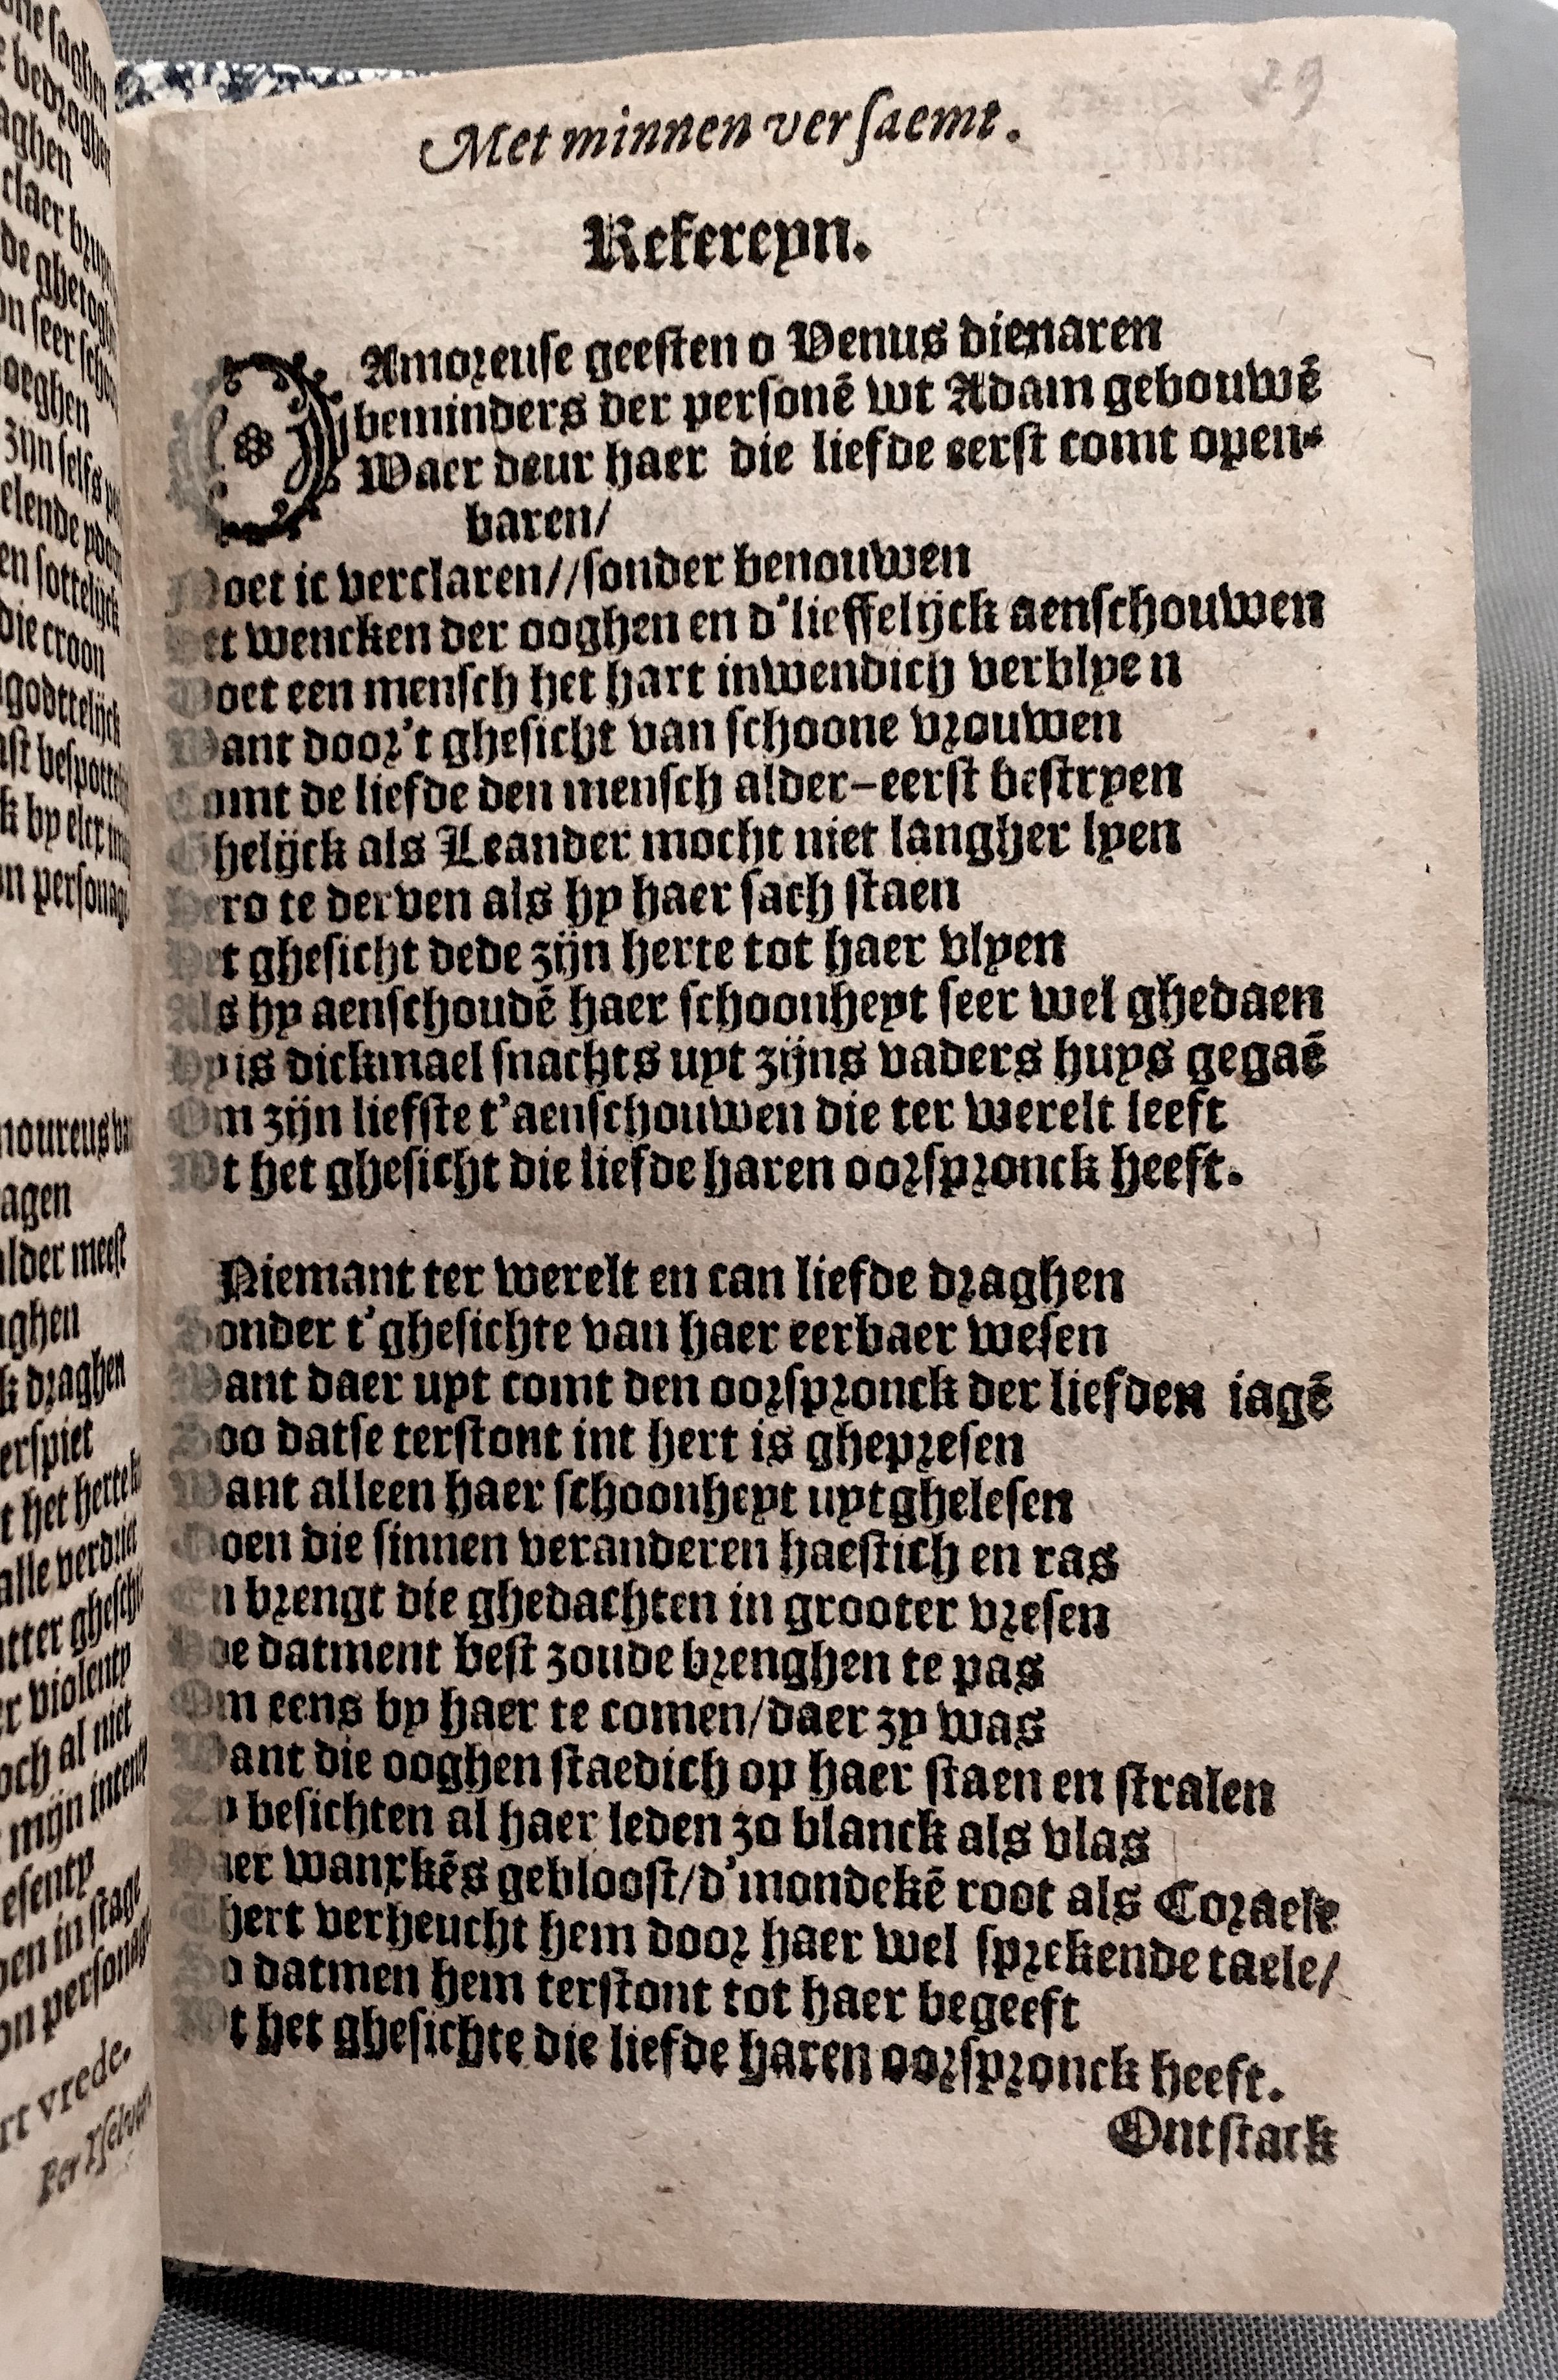 29
Met minnen versaemt.
Refereyn.
O Amoreuse geesten o Venus dienaren
beminders der personē wt Adam gebouwē
Waer deur haer die liefde eerst comt open-
baren/
Moet ic verclaren//sonder benouwen
Het wencken der ooghen en d'lieffelijck aenschouwen
Doet een mensch het hart inwendich verblyen
Want door't ghesicht van schoone vrouwen
Comt de liefde den mensch alder-eerst bestryen
Ghelijck als Leander mocht niet langher lyen
Hero te derven als hy haer sach staen
Het ghesicht dede zijn herte tot haer vlyen
Als hy aenschoudē haer schoonheyt seer wel ghedaen
Hy is dickmael snachts uyt zijns vaders huys gegaē
Om zijn liefste t'aenschouwen die ter werelt leeft
Wt het ghesicht die liefde haren oorspronck heeft.
Niemant ter werelt en can liefde draghen
Sonder t'ghesichte van haer eerbaer wesen
Want daer uyt comt den oorspronck der liefden iagē
Soo datse terstont int hert is ghepresen
Want alleen haer schoonheyt uytghelesen
Doen die sinnen veranderen haestich en ras
En brengt die ghedachten in grooter vresen
Hoe datment best zoude brenghen te pas
Om eens by haer te comen/daer zy was
Want die ooghen staedich op haer staen en stralen
Zy besichten al haer leden zo blanck als vlas
Haer wanxkēs gebloost/d'mondekē root als Coraele
Thert verheucht hem door haer wel sprekende taele/
So datmen hem terstont tot haer begeeft
Wt het ghesichte die liefde haren oorspronck heeft.
Ontstack